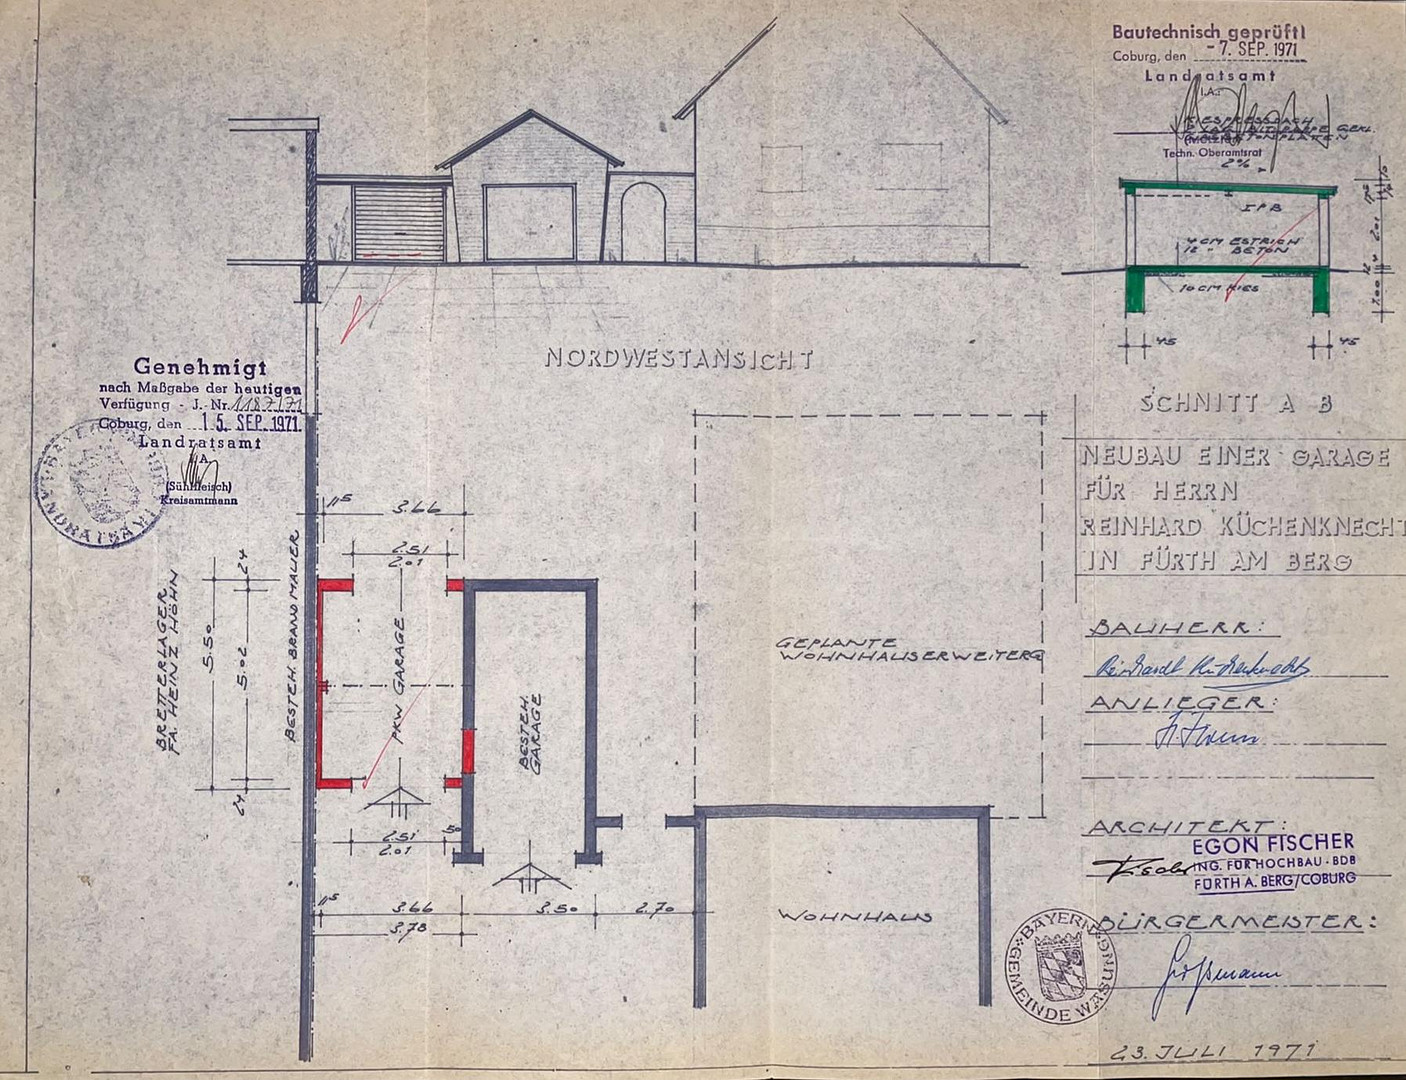 Bautechnisch geprüft!
Coburg, den - 7. SEP. 1971
Landratsamt
I.A.:
KIESPRESSDACH
GEKL.
Techn. Oberamtsrat
2%
IPB
4 CM ESTRICH
12 " BETON
10 CM KIES
2.01
12
1.00
45
45
SCHNITT A B
NORDWESTANSICHT
Genehmigt
nach Maßgabe der heutigen
Verfügung - J.-Nr. 1187/71
Coburg, den 15. SEP. 1971
Landratsamt
I.A.
(Sühlfleisch)
Kreisamtmann
LANDRATSAMT
NEUBAU EINER GARAGE
FÜR HERRN
REINHARD KÜCHENKNECHT
IN FÜRTH AM BERG
11⁵
3.66
2.51
2.01
24
5.50
5.02
24
BRETTERLAGER
FA. HEINZ HÖHN
BESTEH. BRANDMAUER
PKW GARAGE
BESTEH.
GARAGE
GEPLANTE
WOHNHAUSERWEITERG
2.51
2.01
50
11⁵
3.66
3.50
2.70
3.78
WOHNHAUS
BAUHERR:
Reinhardt Küchenknecht
ANLIEGER:
ARCHITEKT:
EGON FISCHER
ING. FÜR HOCHBAU · BDB
FÜRTH A. BERG/COBURG
BÜRGERMEISTER:
BAYERN
GEMEINDE WASUNGEN
23. JULI 1971